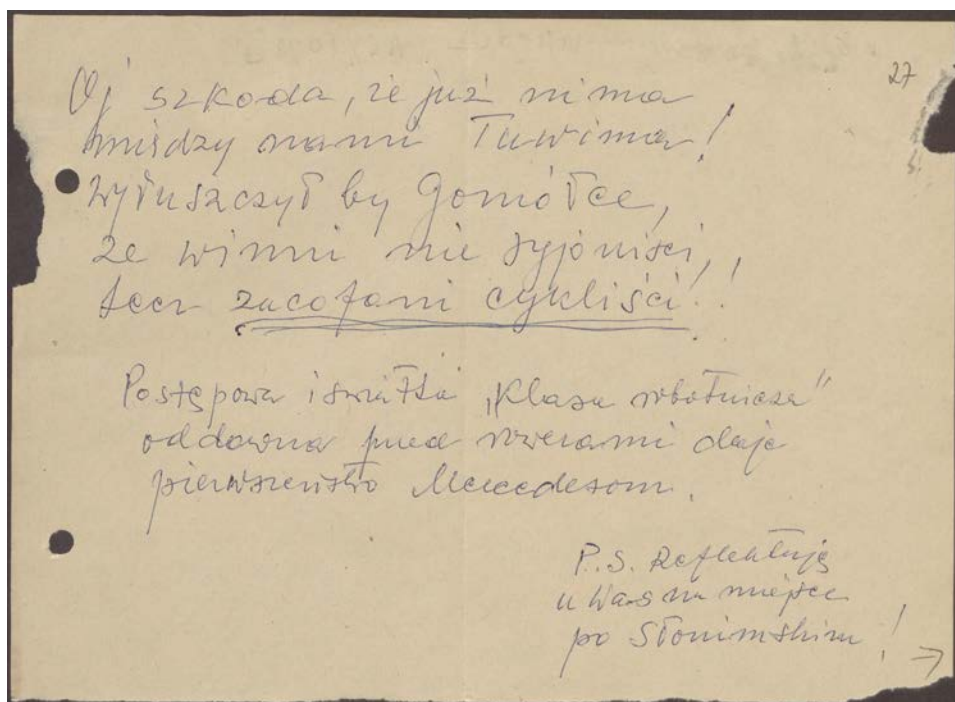 27
Oj szkoda, że już nima
między nami Tuwima!
Wyłuszczył by Gomółce,
że winni nie syjoniści,
lecz zacofani cykliści!!
Postępowa i światła „Klasa robotnicza"
oddawna przed rowerami daje
pierwszeństwo Mercedesom.
P.S. Reflektuję
u Was na miejsce
po Słonimskim!
→